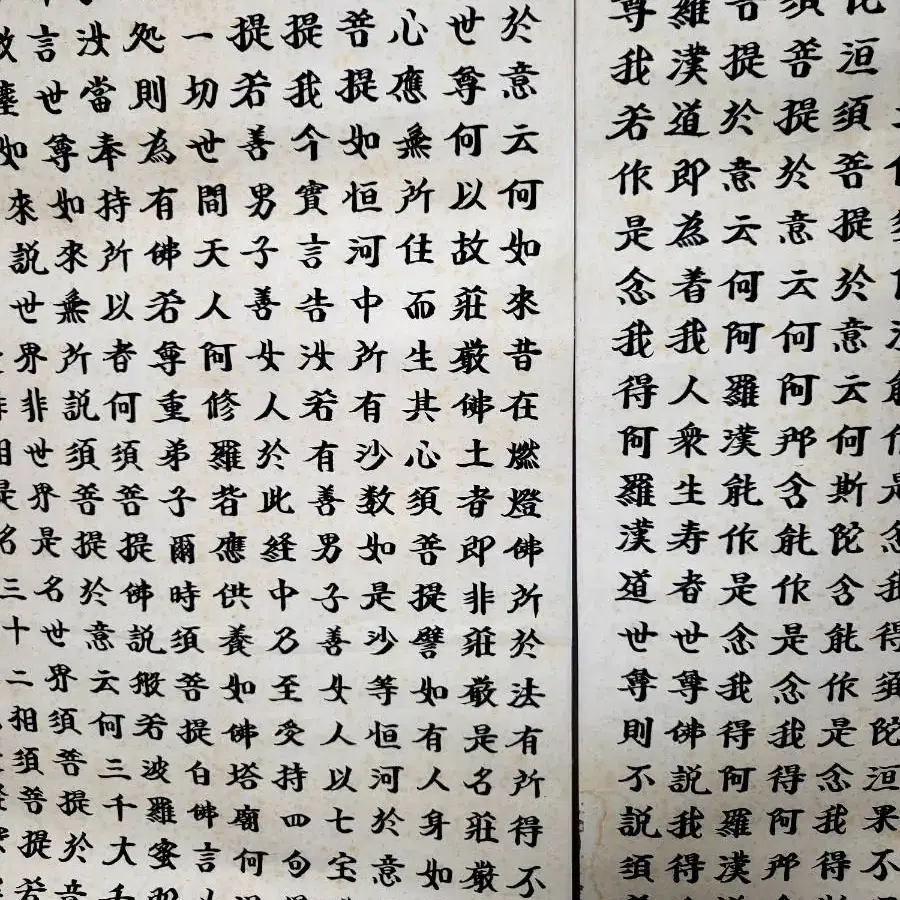 是念我得須陀洹果不
洹須菩提於意云何斯陀含能作是念我得
須菩提於意云何阿那含能作是念我得阿那
菩提於意云何阿羅漢能作是念我得阿羅漢
羅漢道即為着我人衆生寿者世尊佛説我得
尊我若作是念我得阿羅漢道世尊則不説須
於意云何如來昔在燃燈佛所於法有所得不
世尊何以故莊厳佛土者即非莊厳是名莊厳
心應無所住而生其心須菩提譬如有人身如
菩提如恒河中所有沙数如是沙等恒河於意
提我今實言告汝若有善男子善女人以七宝
提若善男子善女人於此経中乃至受持四句
一切世間天人阿修羅皆應供養如佛塔廟何
処則為有佛若尊重弟子爾時須菩提白佛言
汝當奉持所以者何須菩提佛説般若波羅蜜即
言世尊如來無所説須菩提於意云何三千大千
塵如來説世界非世界是名世界須菩提於意
相是名三十二相須菩提若